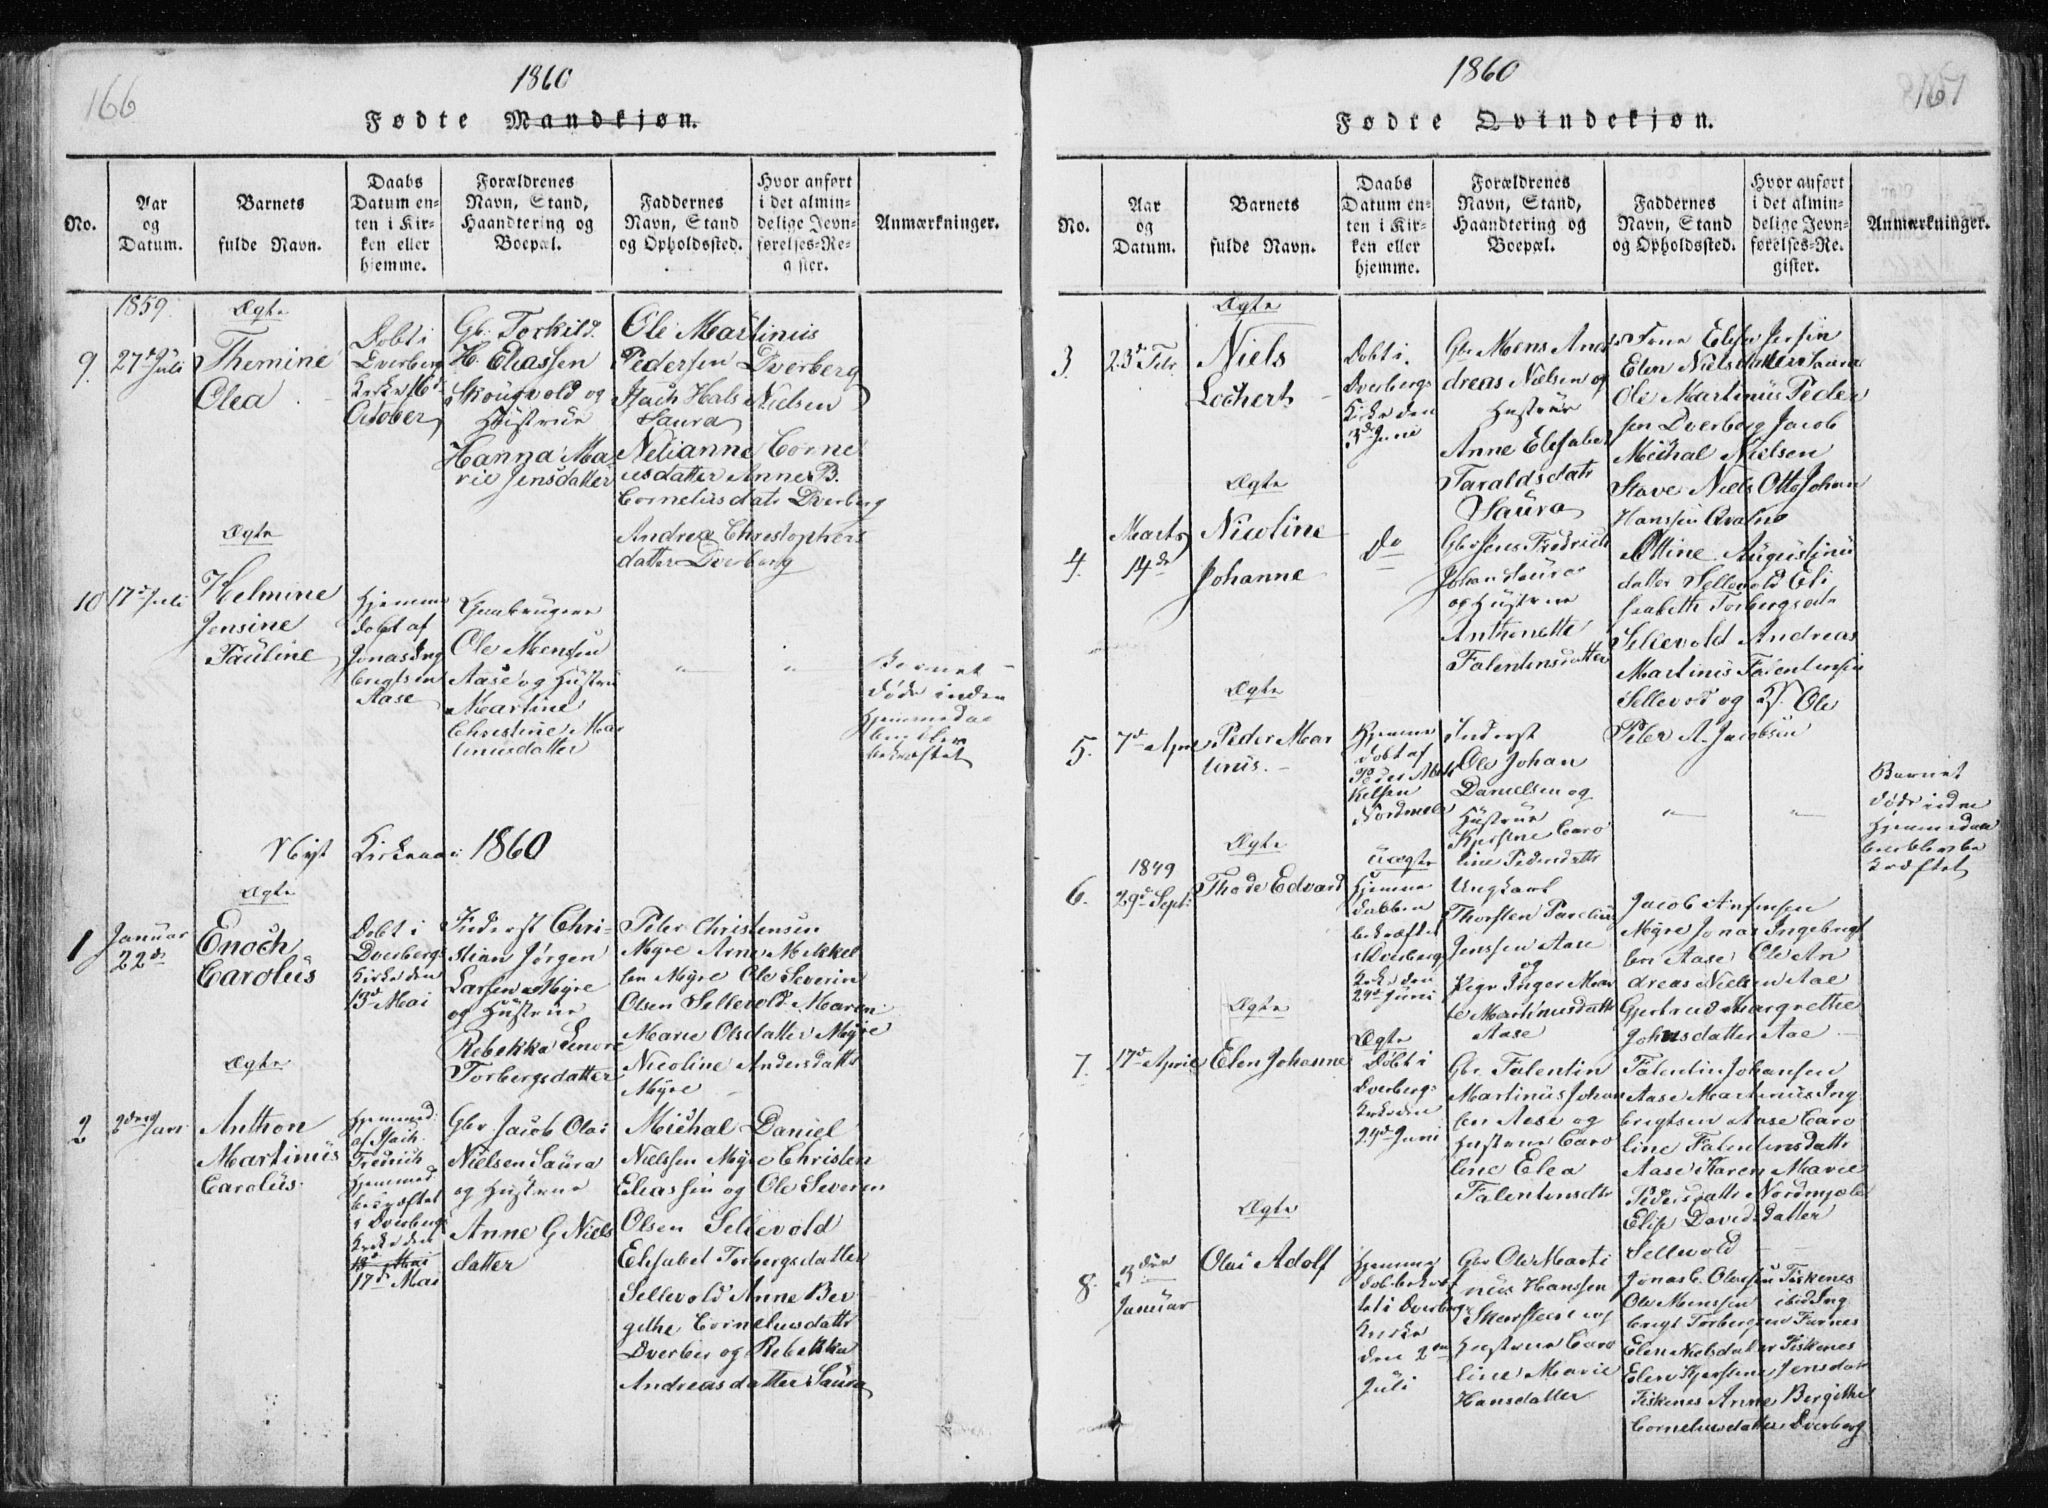 166
1860
Fødte Mandkjøn.
No.
Aar
og
Datum.
Barnets
fulde Navn.
Daabs
Datum en-
ten i Kir-
ken eller
hjemme.
Forældrenes
Navn, Stand,
Haandtering og
Boepæl.
Faddernes
Navn, Stand
og Opholdssted.
Hvor anført
i det almin-
delige Jevn-
førelses-Re-
gister.
Anmærkninger.
1859.
9.
27de Juli
Ægte
Themine
Olea
Dobt i
Dverberg
Kirke 16de
October
Gb. Torkild.
H. Eliassen
Skougvold og
Hustrue
Hanna Ma
rie Jensdatter
Ole Martinus
Pedersen Dverberg
Isach Hals Nielsen
Saura
Nelianne Corne
liusdatter Anne B.
Corneliusdatr Dverberg
Andrea Christophers
datter Dverberg
10
17de Juli
Ægte
Helmine
Jensine
Pauline
Hjemme
dobt af
Jonas Ing
brigtsen
Aase
Gaubruger
Ole Monssen
Aase og Hustru
Martine
Christine Mar
tinusdatter
"
"
Barnet
døde inden
Hjemmedaa
ben blev
bekræftet
Nyt Kirkeaar 1860
1
Januar
22de
Ægte
Enoch
Carolüs
Dobt i
Dverbergs
Kirke den
13de Mai
Inderst Chri-
stian Jörgen
Larsen Myre
og Hustrue
Rebekka Lenore
Torbergsdatter
Peter Christensen
Myre Arne Mikkel
sen Myre Ole Severin
Olsen Sellevold. Maren
Marie Olsdatter Myre
Nicoline Andersdattr
Myre
2
2den Jan
Ægte
Anthon
Martinüs
Carolüs.
Hjemmed.
af Isach
Fredrich
Hjemmed.
bekræftet
i Dverberg
Kirke den
13de Mai
17de Mai
Gbr Jacob Olai
Nielsen Saura
og Hustrue
Anne G Niels
datter
Michal Daniel
Nielssen Myre Christen
Eliassen og Ole Severen
Olsen Sellevold
Elisabet Torbergsdatter
Sellevold Anne Ber
githe Corneliusdattr
Dverber og Rebekka
Andreasdatter Saura
167
1860
Fødte Qvindekjøn.
No.
Aar
og
Datum.
Barnets
fulde Navn.
Daabs
Datum en-
ten i Kir-
ken eller
hjemme.
Forældrenes
Navn, Stand,
Haandtering og
Boepæl.
Faddernes
Navn, Stand
og Opholdssted.
Hvor anført
i det almin-
delige Jevn-
førelses-Re-
gister.
Anmærkninger.
3.
23de Febr.
Ægte
Niels
Lochert
Dobt i
Dverbergs
Kirke den
3de Juni
Gbr Mons And
dreas Nielsen og
Hustrue
Anne Elisabet
Taraldsdatr
Saura
Elen Nielsdatter Saura
Ole Martinus Peder
sen Dverberg Jacob
Michal Nielsen
Stave Niels Otto Johan
Hanssen Qvalnæ
4.
Marts
14de
Ægte
Nicoline
Johanne
Do
Gbr Jens Fredrich
Johan Saura
og Hustrue
Anthonette
Falentinsdatter
Ottine Augustinu
datter Sellevold Eli
saabeth Torbergsdr
Sellevold Andreas
Martinus Falentinsen
Sellevod og Ole
Peter A. Jacobsen
5.
7de April
Ægte
Peder Mar
tinus.
Hjemme
dobt af
Peder Mik
kelsen
Nordmele
Inderst
Ole Johan
Danielsen og
Hustrue
Kjerstine Caro
line Pedersdattr
"
"
Barnet
døde inden
Hjemmedaa
ben blev be
kræftet
6.
1849
29de Sept:
Ægte
Thode Edvard
uægte
Hjemme
daaben
bekræftet
i Dverberg
Kirke den
24de Juni
Ungkarl
Thorsten Parelius
Jenssen Aase
og
Pige Inger Mar
te Martinusdattr
Aase
Jacob Anfinsen
Myre Jonas Ingebrigt
sen Aase Ole An
dreas Nielsen Aae
Gjertrud Margrethe
Johnsdatter Aae
7.
17de April
Ægte
Elen Johanne
Ægte
Döbt i
Dverbergs
Kirke den
24de Juni
Gbr. Falentin
Martinüs Johan
sen Aase og
Hustrue Caro
line Elea
Falentinsdtr
Falentin Johansen
Aase Martinüs Ing
brigtsen Aase Caro
line Falentinsdattr
Aase Karen Marie
Pedersdattr Nordmjele
Elip Davidsdatter
Sellevold
8.
3den
Januar
Ægte
Olai Adolf
Hjemme
dob bekræf
tet i Dverberg
Kirke
den 2den
Juli
Gbr Ole Marti
nüs Hanssen
Skarsteen og
Hustrue Caro
line Marie
Hansdatter
Jonas C. Olassen Fiskenes
Ole Monssen ibid Ing
brigt Torbergsen Furnes
Elen Nielsdatter Fiskenes
Elen Kjerstine Jensdatr
Fiskenes Anne Bergithe
Corneliusdatter Dverberg